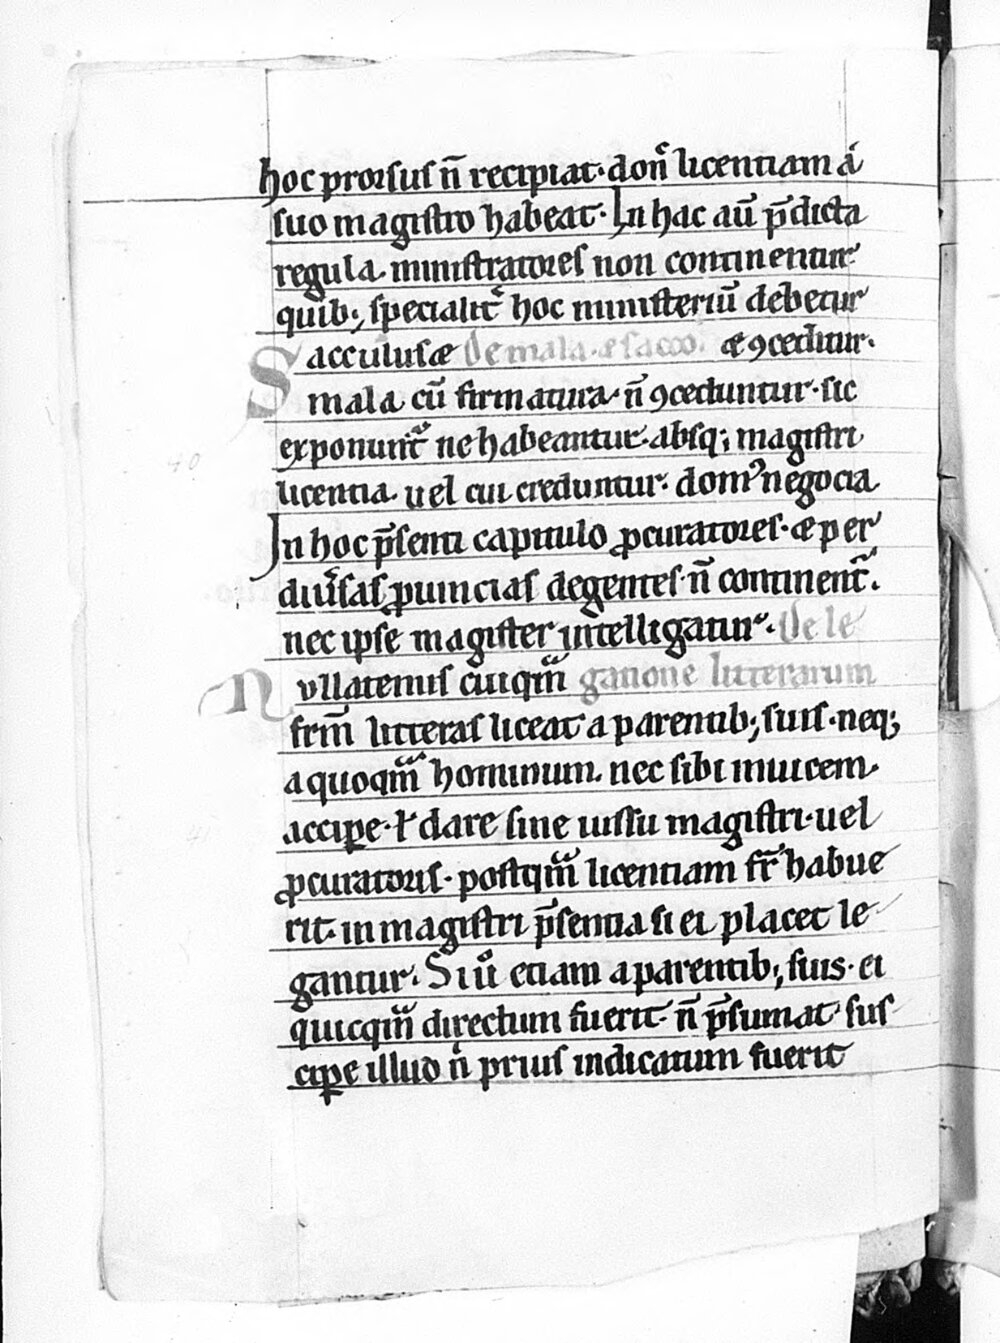 hoc prorsus n̄ recipiat· don̄ licentiam a
suo magistro habeat· In hac aū p̄dicta
regula ministratores non continentur
quib; specialit̄ hoc ministeriū debetur
Sacculus æ De mala· æ sacco· æ ꝯceditur·
mala cū firmatura n̄ ꝯceduntur· sic
exponunt̄ ne habeantur absq; magistri
licentia uel cui creduntur· domꝰ negocia
In hoc p̄senti capitulo ꝓcuratores· æ per
diu̾sas ꝓuincias degentes n̄ continent̄·
nec ipse magister intelligatur· De le
Nullatenus cuiqm̄ gatione litterarum
frm̄ litteras liceat a parentib; suis· neq;
a quoqm̄ hominum· nec sibi inuicem
accipe· ł dare sine iussu magistri· uel
ꝓcuratoris· postqm̄ licentiam fr̄ habue
rit· in magistri p̄sentia si ei placet le
gantur· Si ū etiam a parentib; suis· ei
quicqm̄ directum fuerit· n̄ p̄sumat sus
ciꝑe illud n̄ prius indicatum fuerit
40
41